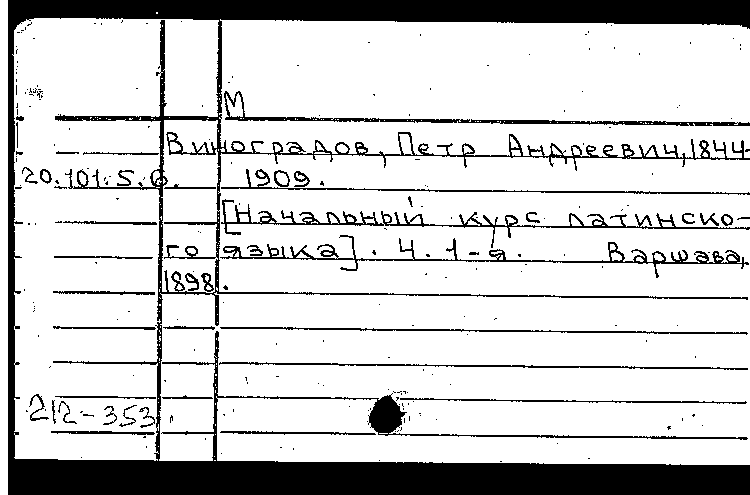 М
Виноградов, Петр Андреевич, 1844-
20.101.5.6. 1909.
[Начальный курс латинско-
го языка]. Ч. 1-я. Варшава,
1898.
212-353.